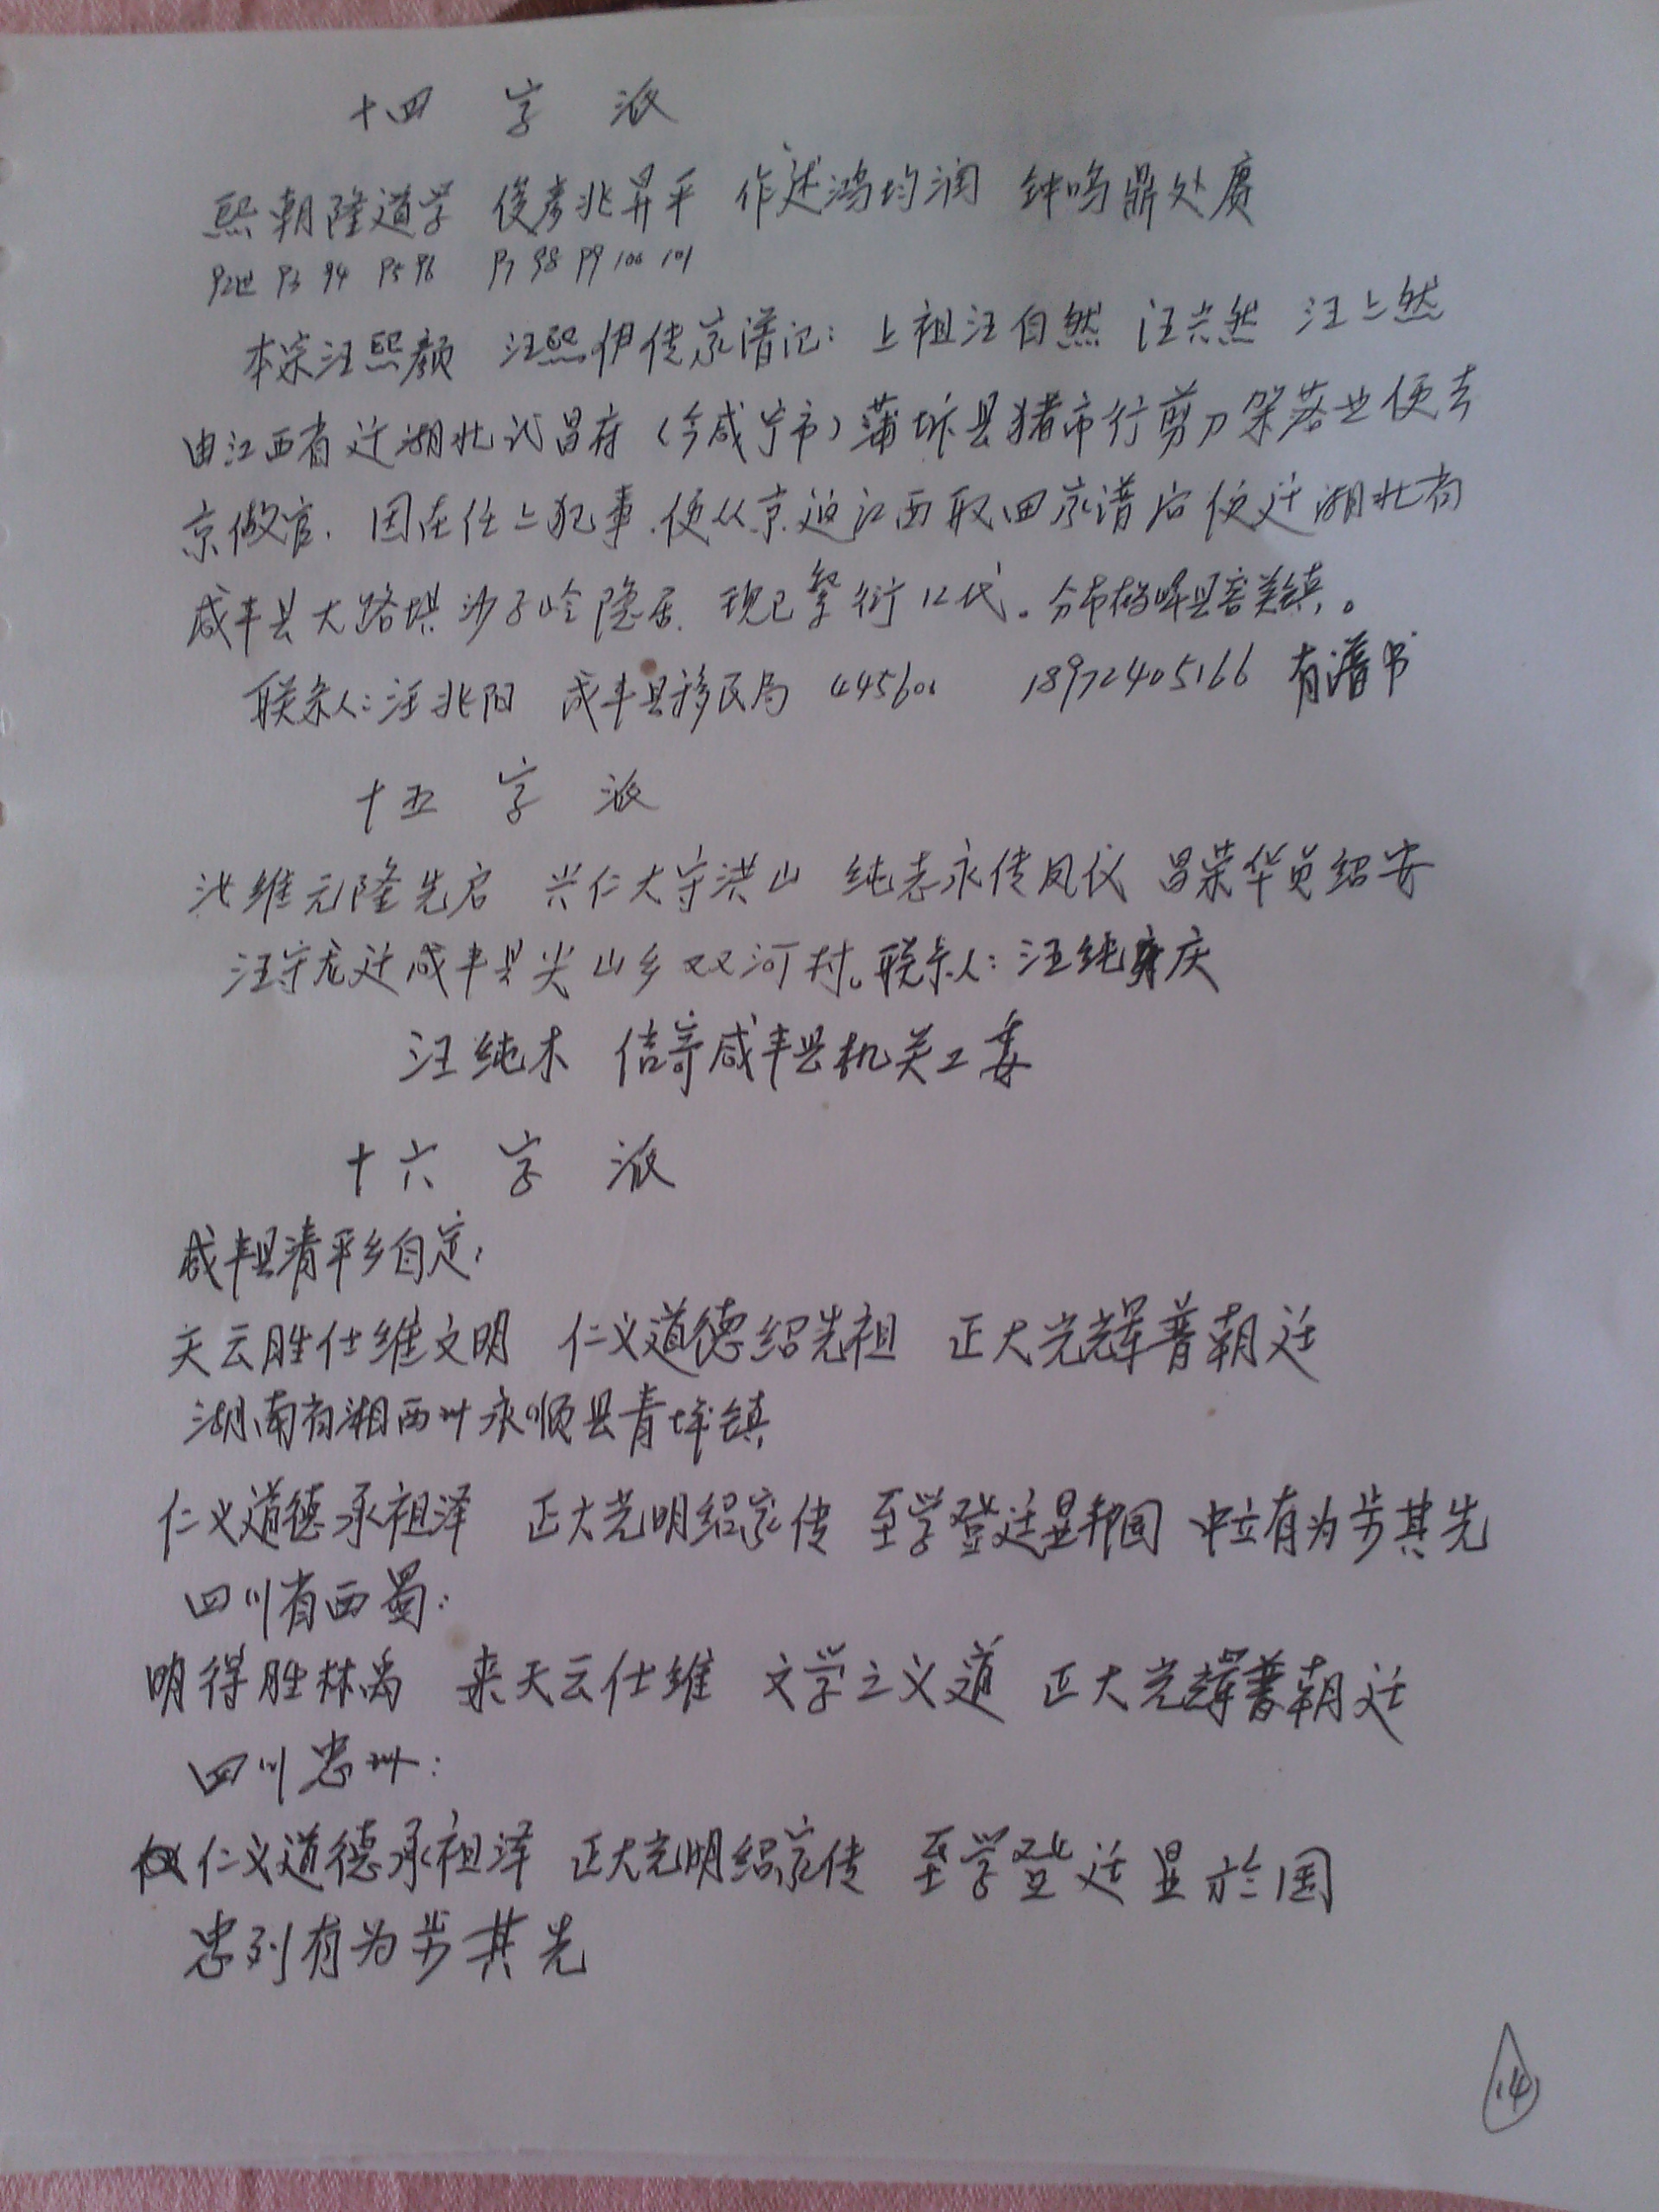 十四 字 派
熙朝隆道学 俊彦兆昇平 作述鸿均润 钟鸣鼎处赓
92世 93 94 95 96 97 98 99 100 101
本宗汪熙颜 汪熙伊传家谱记：上祖汪自然 汪兴然 汪上然
由江西省迁湖北武昌府（今咸宁市）蒲圻县猪市行剪刀架落业便去
京做官．因在任上犯事．便从京返江西取回家谱后便迁湖北省
咸丰县大路坝沙子岭隐居．现已繁衍12代。分布鹤峰县容美镇。
联系人：汪兆阳 咸丰县移民局 445600 18972405166 有谱书
十五 字 派
洪维元隆先启 兴仁大守洪山 纯志永传凤仪 昌荣华英绍安
汪守龙迁咸丰县尖山乡双河村。联系人：汪纯庆
汪纯木 信寄咸丰县机关工委
十六 字 派
咸丰县清平乡自定：
天云胜仕维文明 仁义道德绍先祖 正大光辉普朝廷
湖南省湘西州永顺县青坪镇
仁义道德承祖泽 正大光明绍家传 至学登廷显邦国 中立有为步其先
四川省西蜀：
明得胜林禹 来天云仕维 文学之义道 正大光辉普朝廷
四川忠州：
仁义道德承祖泽 正大光明绍家传 至学登廷显于国
忠列有为步其先
14